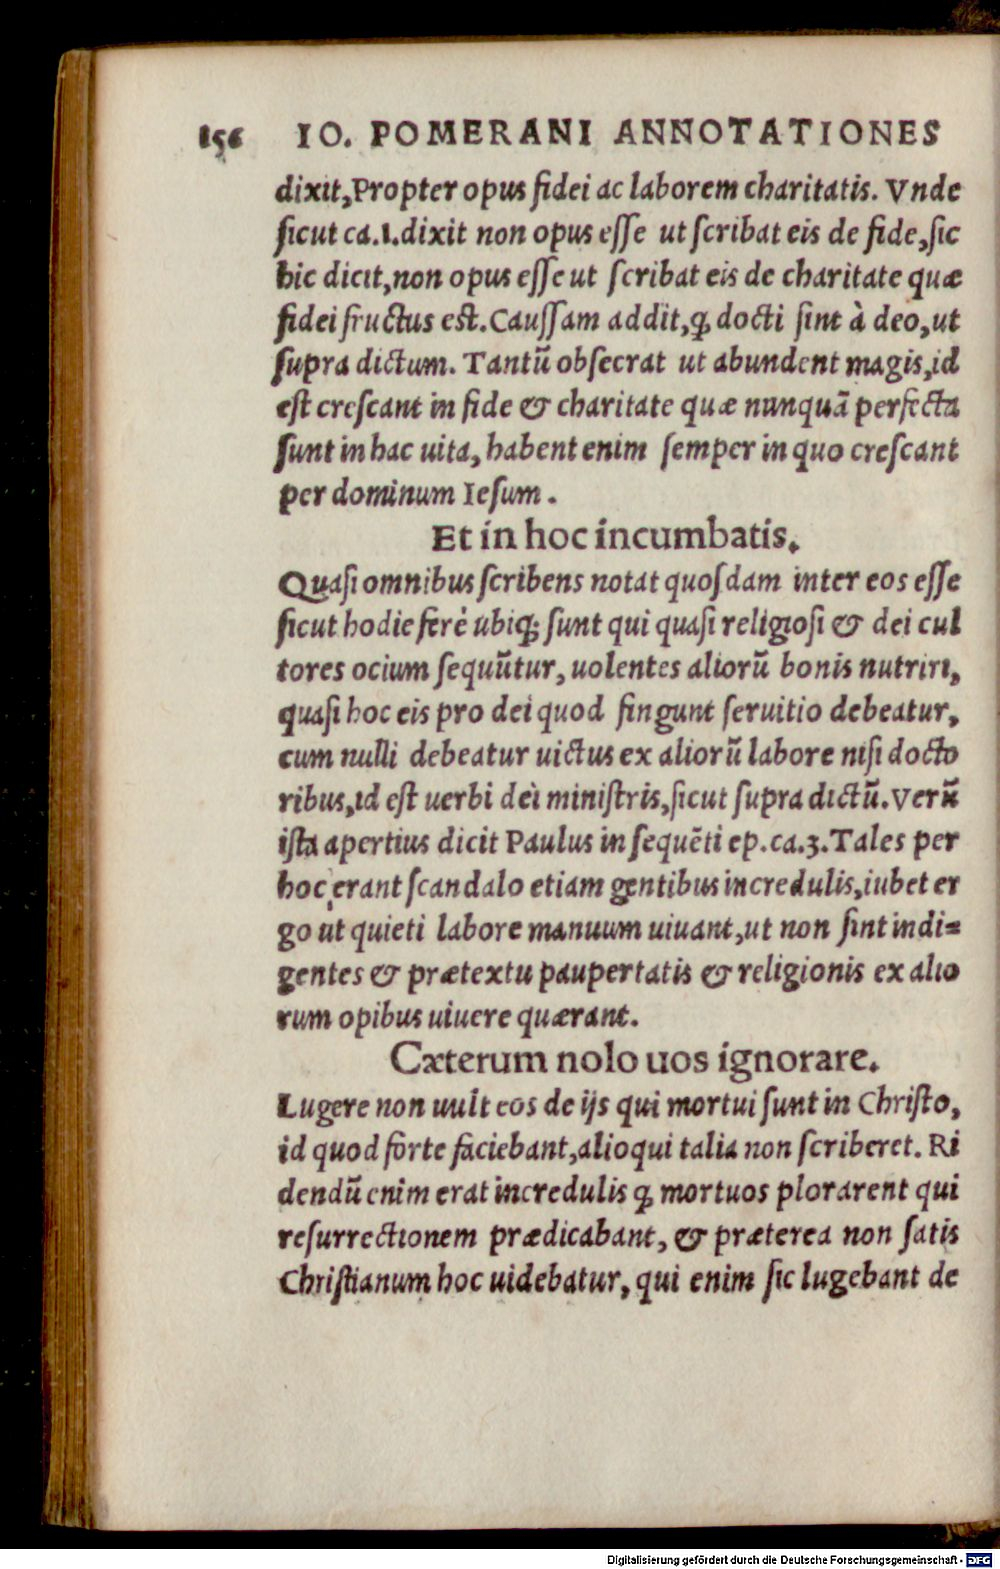 156 IO. POMERANI ANNOTATIONES
dixit, Propter opus fidei ac laborem charitatis. Vnde
ſicut ca.1.dixit non opus eſſe ut ſcribat eis de fide, ſic
hic dicit, non opus eſſe ut ſcribat eis de charitate quæ
fidei fructus eſt. Cauſſam addit, ꝙ docti ſint à deo, ut
ſupra dictum. Tantũ obſecrat ut abundent magis, id
eſt creſcant in fide & charitate quæ nunquã perfecta
ſunt in hac uita, habent enim ſemper in quo creſcant
per dominum Ieſum.
Et in hoc incumbatis.
Quaſi omnibus ſcribens notat quoſdam inter eos eſſe
ſicut hodie ferè ubiqꝫ ſunt qui quaſi religioſi & dei cul
tores ocium ſequũtur, uolentes aliorũ bonis nutriri,
quaſi hoc eis pro dei quod fingunt ſeruitio debeatur,
cum nulli debeatur uictus ex aliorũ labore niſi docto
ribus, id eſt uerbi dei miniſtris, ſicut ſupra dictũ. Verũ
iſta apertius dicit Paulus in ſequẽti ep. ca.3. Tales per
hoc erant ſcandalo etiam gentibus incredulis, iubet er
go ut quieti labore manuum uiuant, ut non ſint indi=
gentes & prætextu paupertatis & religionis ex alio
rum opibus uiuere quærant.
Cæterum nolo uos ignorare.
Lugere non uult eos de ijs qui mortui ſunt in Chriſto,
id quod forte faciebant, alioqui talia non ſcriberet. Ri
dendũ enim erat incredulis ꝙ mortuos plorarent qui
reſurrectionem prædicabant, & præterea non ſatis
Chriſtianum hoc uidebatur, qui enim ſic lugebant de
Digitalisierung gefördert durch die Deutsche Forschungsgemeinschaft - DFG